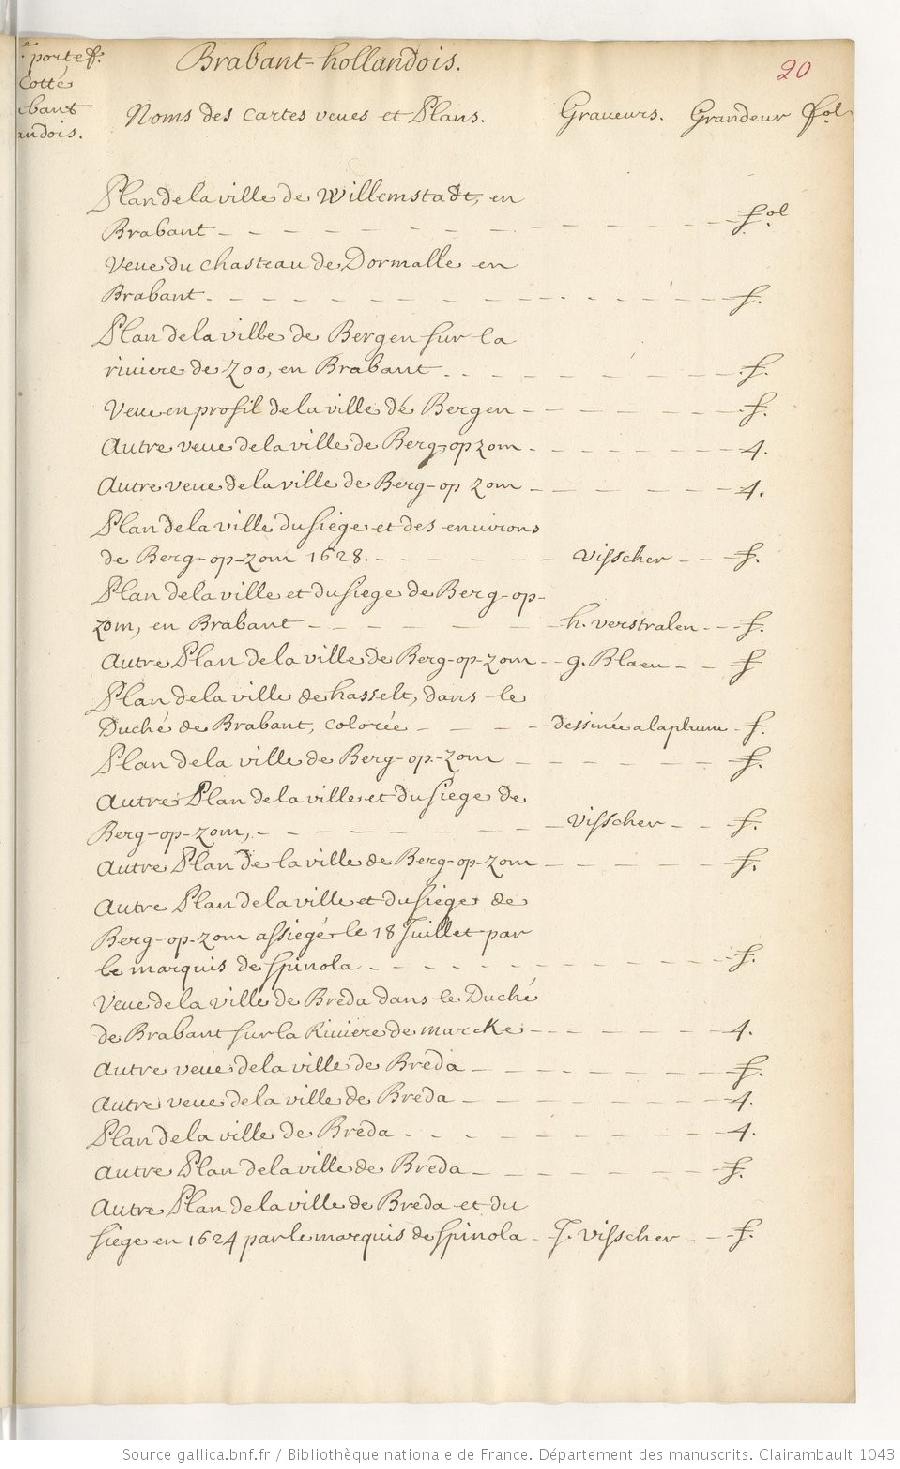 portef.
Cotté
Brabant-hollandois.
20
bant
andois.
Noms des cartes veues et Plans. Graveurs. Grandeur fol
Plan de la ville de Willemstadt, en
Brabant - - - - - - - - - - - - fol.
Veue du chasteau de Dormalle en
Brabant. - - - - - - - - - - - - f.
Plan de la ville de Bergen sur la
riviere de Zoo, en Brabant - - - - - - - f.
Veue en profil de la ville de Bergen - - - - - - f.
Autre veue de la ville de Berg-op zom - - - - - - 4.
Autre veue de la ville de Berg-op zom - - - - - - 4.
Plan de la ville du siege et des environs
de Berg-op-zom 1628. - - - - Visscher - - f.
Plan de la ville et du siege de Berg-op-
zom, en Brabant - - - - - - h. verstralen - - f.
Autre Plan de la ville de Berg-op-zom - - g. Blaeu - - f
Plan de la ville de hasselt, dans le
Duché de Brabant, colorée - - - - dessinée a la plume - f.
Plan de la ville de Berg-op-zom - - - - - - f.
Autre Plan de la ville et du siege de
Berg-op-zom, - - - - - - Visscher - - f.
Autre Plan de la ville de Berg-op-zom - - - - - f.
Autre Plan de la ville et du siege de
Berg-op-zom assiegé le 18 Juillet par
le marquis de Spinola - - - - - - - - - f.
Veue de la ville de Breda dans le Duché
de Brabant sur la Riviere de murcke - - - - - - 4.
Autre veue de la ville de Breda - - - - - - - f.
Autre veue de la ville de Breda - - - - - - - 4.
Plan de la ville de Breda - - - - - - - - 4.
Autre Plan de la ville de Breda - - - - - - - f.
Autre Plan de la ville de Breda et du
siege en 1624 par le marquis de Spinola - J. Visscher - - f.
Source gallica.bnf.fr / Bibliothèque nationale de France. Département des manuscrits. Clairambault 1043